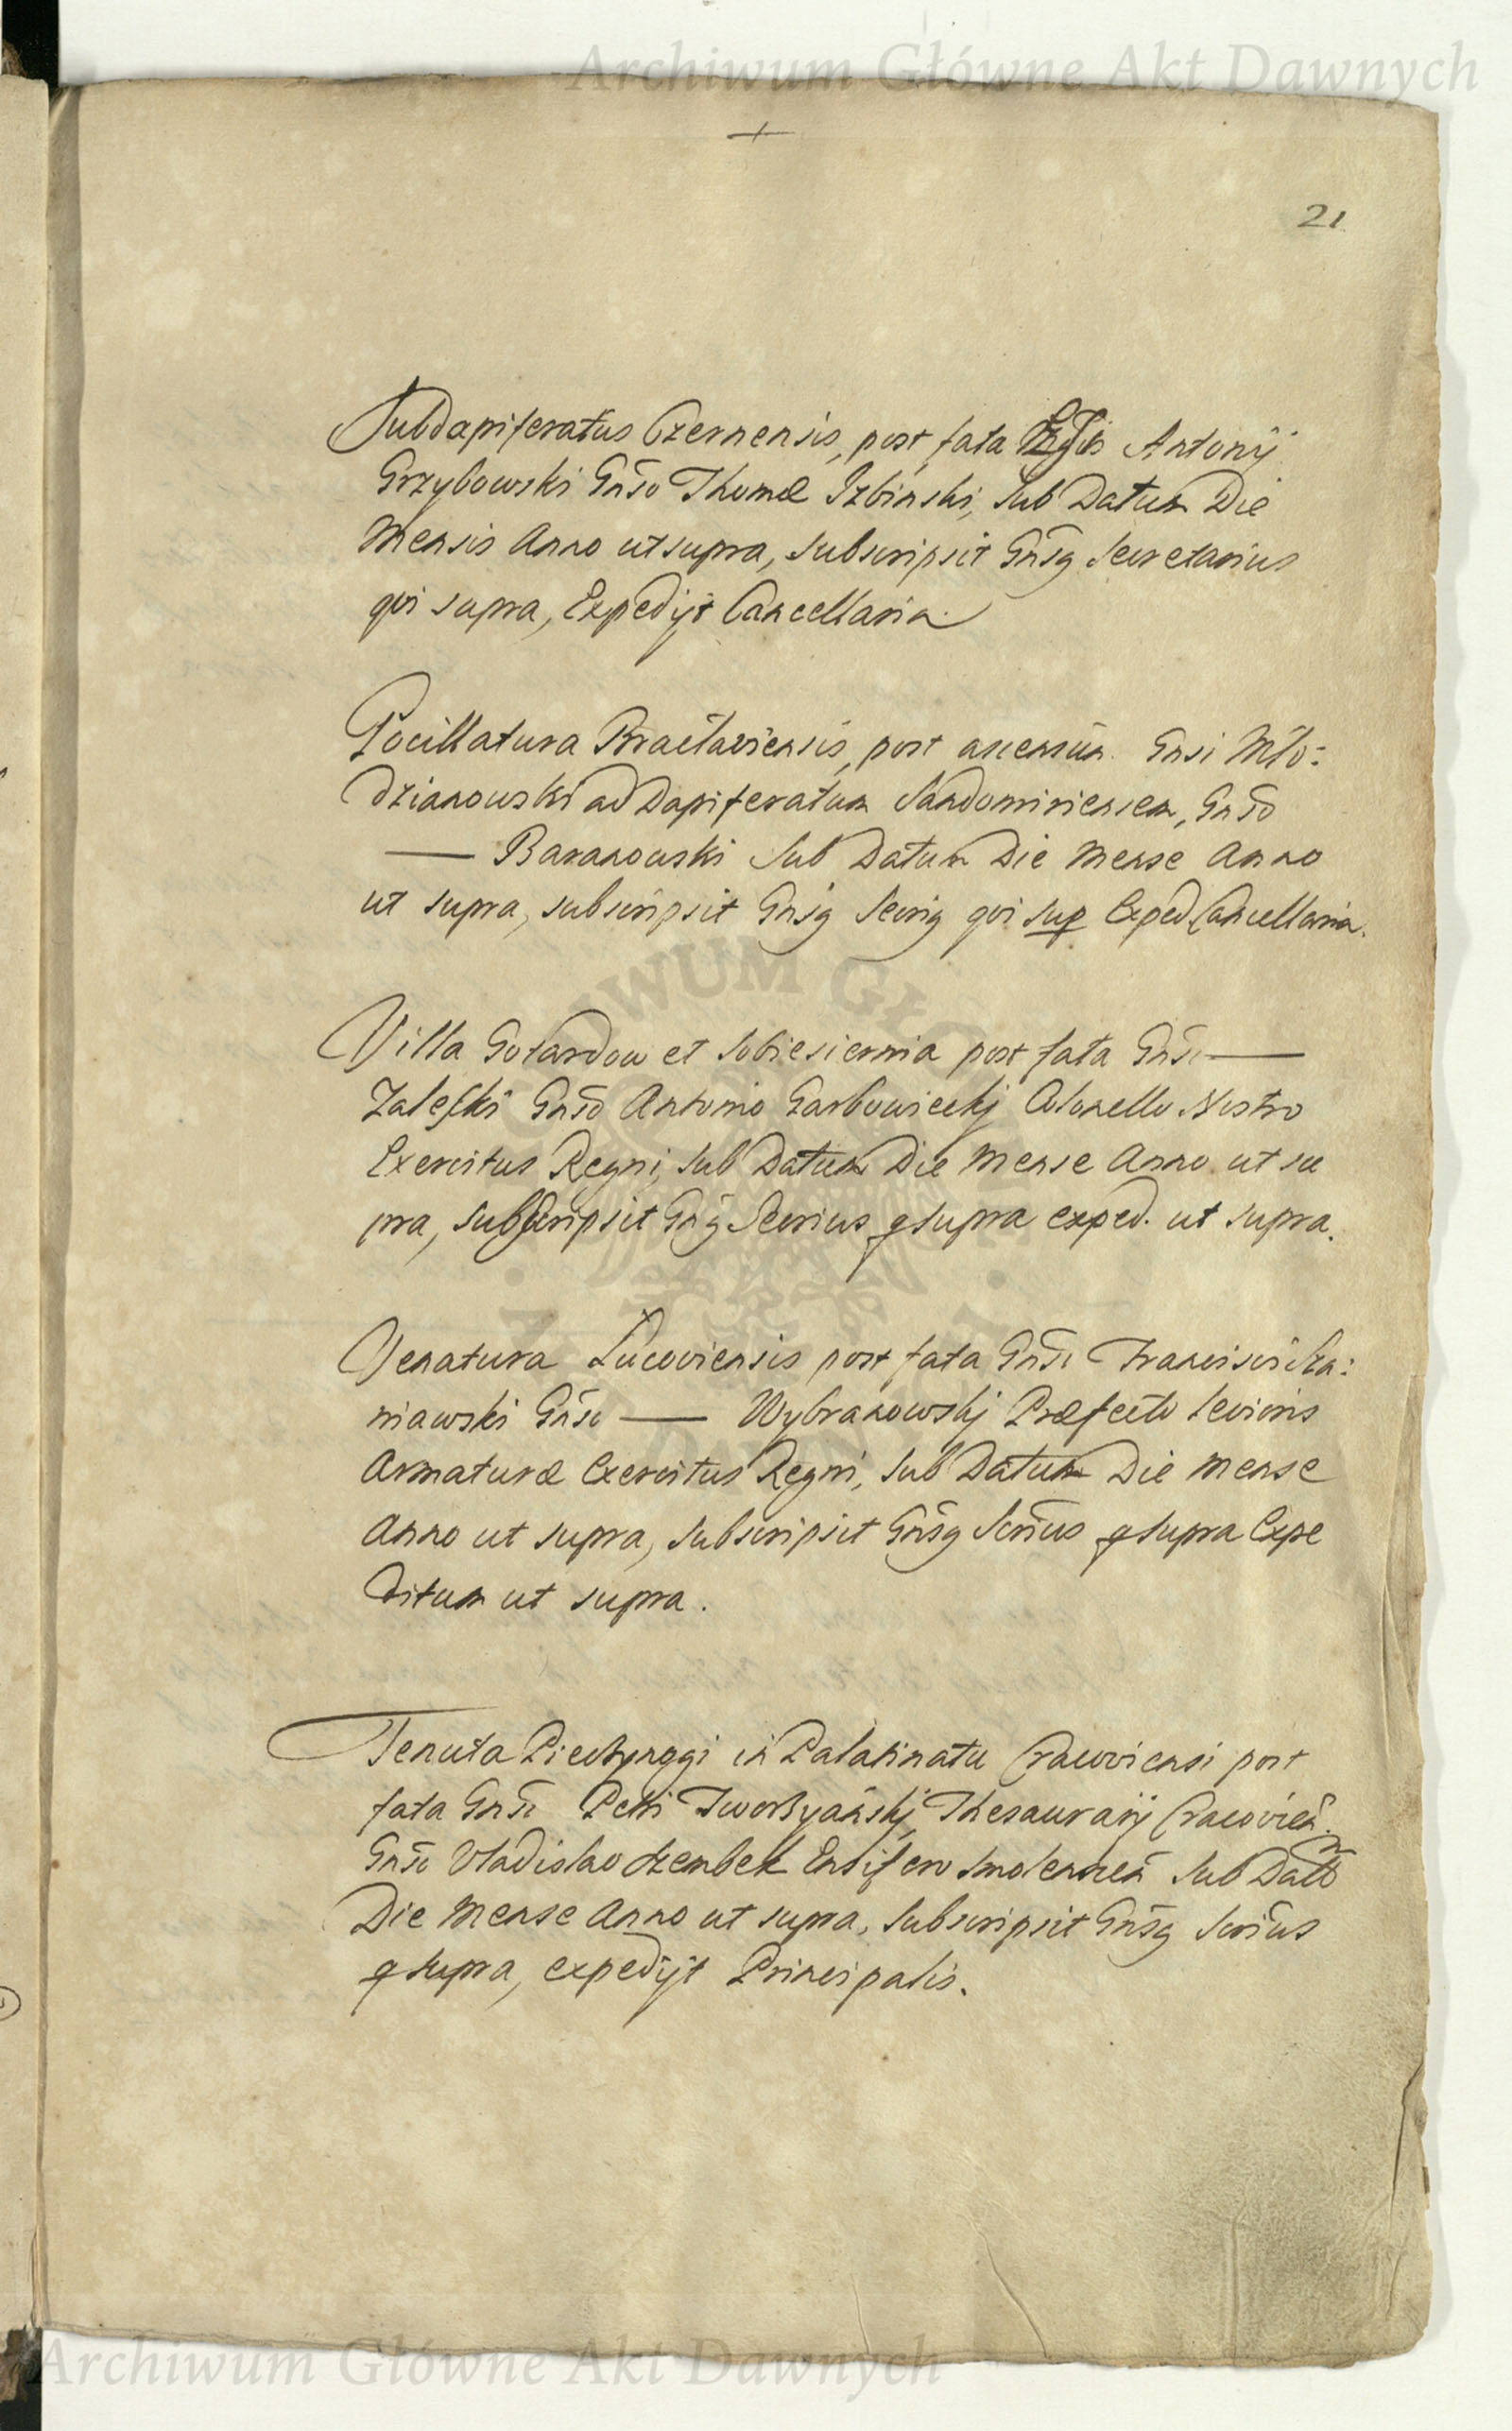 Archiwum Główne Akt Dawnych
21
Subdapiferatus Czernensis, post fata Antonij
Grzybowski Gn̄so Thomæ Izbinski, sub Datum Die
Mensis Anno ut supra, subscripsit Gn̄sg Secretarius
qvi supra, Expedijt Cancellaria.
Pocillatura Braclaviensis, post ascensūm Gnsi Mło:
dzianowski ad Dapiferatum Sandomiriensem, Gnso
— Baranowski Sub Datum Die Mense Anno
ut supra, subscripsit Gnsg Secrig qvi sup Exped Cancellaria.
Villa Gotardow et Sobiesiernia post fata Gn̄si —
Zaleski Gn̄so Antonio Garbowiecki Colonello Nostro
Exercitus Regni, Sub Datum Die Mense Anno ut su
pra, subscripsit Gn̄g Secrius q supra exped. ut supra.
Venatura Lucoviensis post fata Gn̄si Francisci Sza:
niawski Gn̄so — Wybranowskj Præfecto levioris
Armaturæ Exercitus Regni, Sub Datum Die Mense
Anno ut supra, Subscripsit Gn̄sg Scrīus q supra Expe
ditum ut supra.
Tenuta in Palatinatu Cracoviensi post
fata Gn̄si Petri Thesaurarij Cracovien̄.
Gn̄so Vladislao Szembek Ensifero Smolenscen̄ Sub Dattm
Die Mense Anno ut supra, Subscripsit Gn̄sg Scrīus
q supra, expedijt Principalis.
Archiwum Główne Akt Dawnych